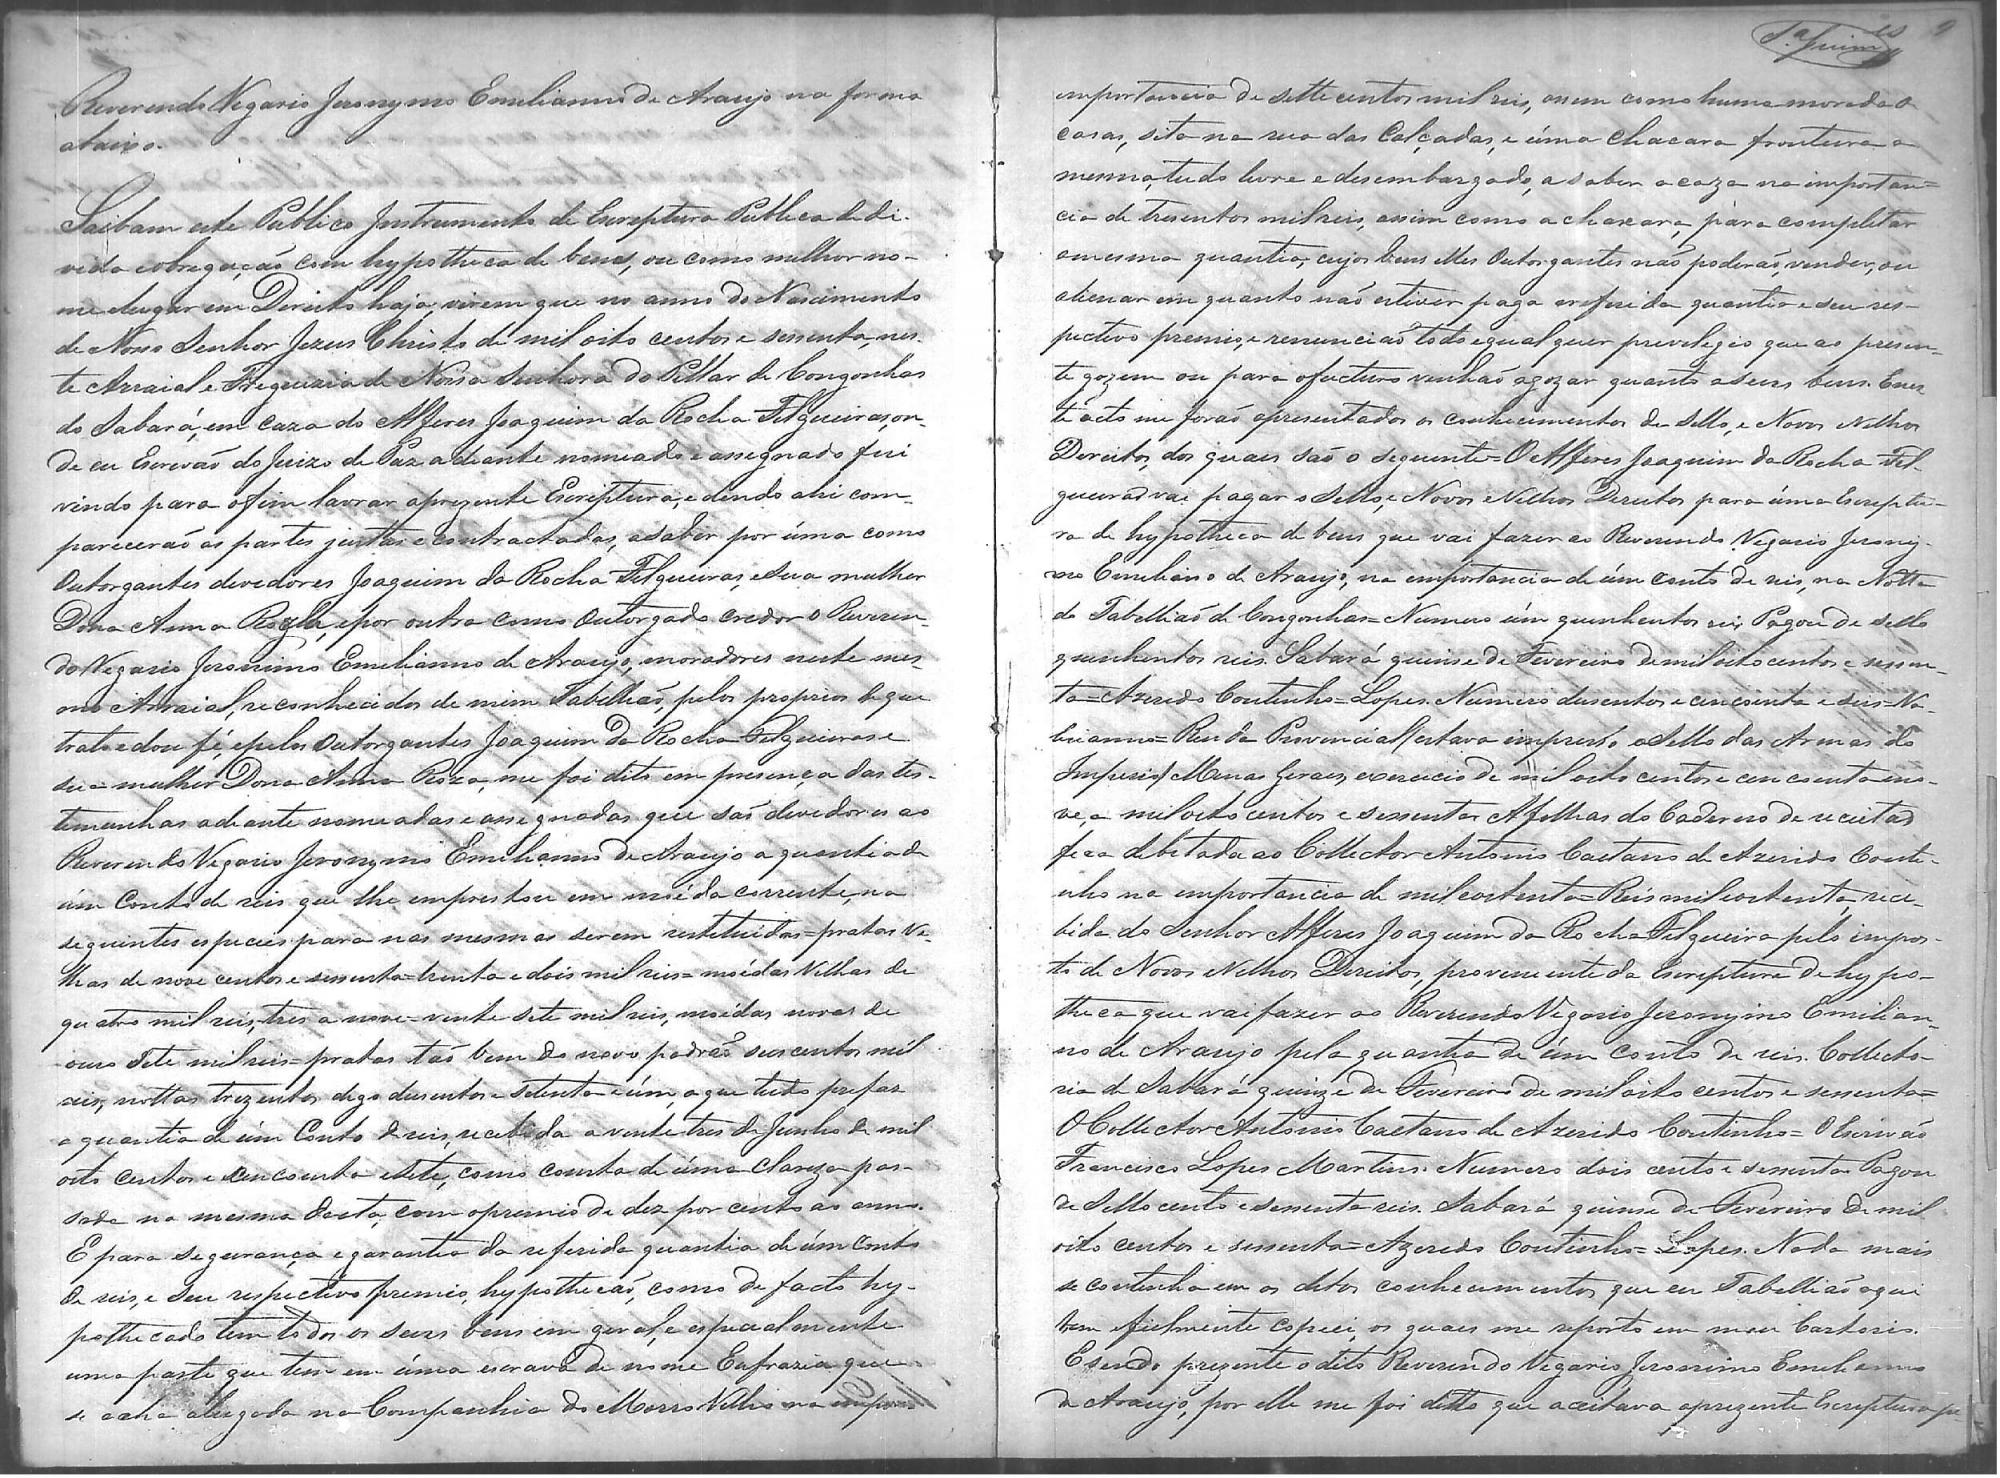 Reverendo Vegario Jeronymo Emelianno de Araujo na forma
abaixo.
Saibam este Publico Instrumento de Escreptura Publica de di-
vida eobregação com hypotheca de bens, ou como melhor no-
me elugar em Direito haja, virem que no anno do Nascimento
de Nosso Senhor Jezus Christo de mil oito centos e sessenta, nes-
te Arraial e Freguizia de Nossa Senhora do Pillar de Congonhas
do Sabará, em caza do Alferes Joaquim da Rocha Filgueiras, on-
de eu Escrivão do Juizo de Paz adiante nomeado e assegnado fui
vindo para ofim lavrar aprezente Escreptura, e dendo ahi com-
parecerão as partes juntas e contractadas, asaber por úma como
Outorgantes devedores Joaquim da Rocha Filgueiras, esua mulher
Dona Anna Roza, epor outra como Outorgado credor o Reveren-
do Vegario Jeronimo Emelianno de Araujo, moradores neste mes-
mo Arraial, reconhecidos de mim Tabellião, pelos proprios de que
trato edou fé, epelos Outorgantes Joaquim da Rocha Filgueiras e
sua mulher Dona Anna Roza, me foi dito em presença das tes-
temunhas adiante nomeadas e assegnadas que são devedores ao
Reverendo Vegario Jeronymo Emelianno de Araujo a quantia de
úm Conto de reis que lhe emprestou em moéda corrente, na
seguintes especies para nas mesmas serem restituidas = pratas Ve-
lhas de nove centos e sessenta = trenta e dois mil reis = moédas Velhas de
quatro mil reis, tres a nove = vente sete mil reis, moédas novas de
ouro Sete mil reis = pratas tão bem do novo padrão seis centos mil
reis, nottas trezentos digo dusentos e setenta e úm, aque tudo prefaz
a quantia de úm Conto de reis, recebida a vente tres de Junho de mil
oito centos e cencoenta esete, como consta de úma clareza pas-
sada na mesma data, com opremio de dez por cento ao anno.
E para segurança e garantia da referida quantia de úm Conto
de reis, e seu respectivo premio, hypothecão, como de facto hy-
pothecado tem todos os seus bens em geral, e especialmente
uma parte que tem em úma escrava de nome Eufrazia que
se acha alugada na Companhia do Morro Velho na
9
importancia de sette centos mil reis, assim como huma morada de
casas, sita na rua das Calçadas, e úma chacara fronteira a
mesma, tudo livre e desembargado, a saber a caza na importan-
cia de tresentos mil reis, assim como a chacara, para completar
amesma quantia, cujos bens elles Outorgantes não poderão, vender, ou
alienar em quanto não estiver paga areferida quantia e seu res-
pectivo premio, e renuncião todo equalquer previlegio que ao presen-
te gozem ou para ofucturo venhão agozar quanto aseus bens. Enes-
te acto me forão apresentados os conhecimentos de Sello, e Novos e Velhos
Direitos, dos quaes são o seguinte = O Alferes Joaquim da Rocha Fil-
gueiras vai pagar o Sello, e Novos e Velhos Direitos para úma Escreptu-
ra de hypotheca de bens que vai fazer ao Reverendo Vegario Jerony-
mo Emeliano de Araujo, na importancia de úm conto de reis, na Notta
do Tabellião de Congonhas = Numero úm quinhentos reis, Pagou de sello
quinhentos reis. Sabará quinse de Fevereiro de mil oito centos e sessen-
ta = Azeredo Coutinho = Lopes. Numero dusentos e cencoenta e seis = Na-
brianno = Renda Provincial (estava impresso o Sello das Armas do
Imperio) Minas Geraes, exercicio de mil oito centos e cencoenta eno-
ve, a mil oito centos e sessenta = Afolhas do Caderno de receitas
fica debetada ao Collector Antonio Caetano de Azeredo Couti-
nho na importancia de mil eoitenta = Reis mil eoitenta, rece-
bida do Senhor Alferes Joaquim da Rocha Filgueira pelo impos-
to de Novos e Velhos Direitos, proveniente da Escreptura de hypo-
theca que vai fazer ao Reverendo Vegario Jeronymo Emilian-
no de Araujo pela quantia de úm conto de reis. Collecto-
ria de Sabará quinze de Fevereiro de mil oito centos e sessenta =
O Collector Antonio Caetano de Azeredo Coutinho = O Escrivão
Francisco Lopes Martins. Numero dois cento e sessenta Pagou
de Sello cento e sessenta reis. Sabará quinse de Fevereiro de mil
oito centos e sessenta = Azeredo Coutinho = Lopes. Nada mais
se continha em os ditos conhecimentos que eu Tabellião aqui
bem efielmente copiei, os quaes me reporto em meu Cartorio.
E sendo prezente o dito Reverendo Vegario Jeronimo Emelianno
de Araujo, por elle me foi ditto que aceitava aprezente Escreptura